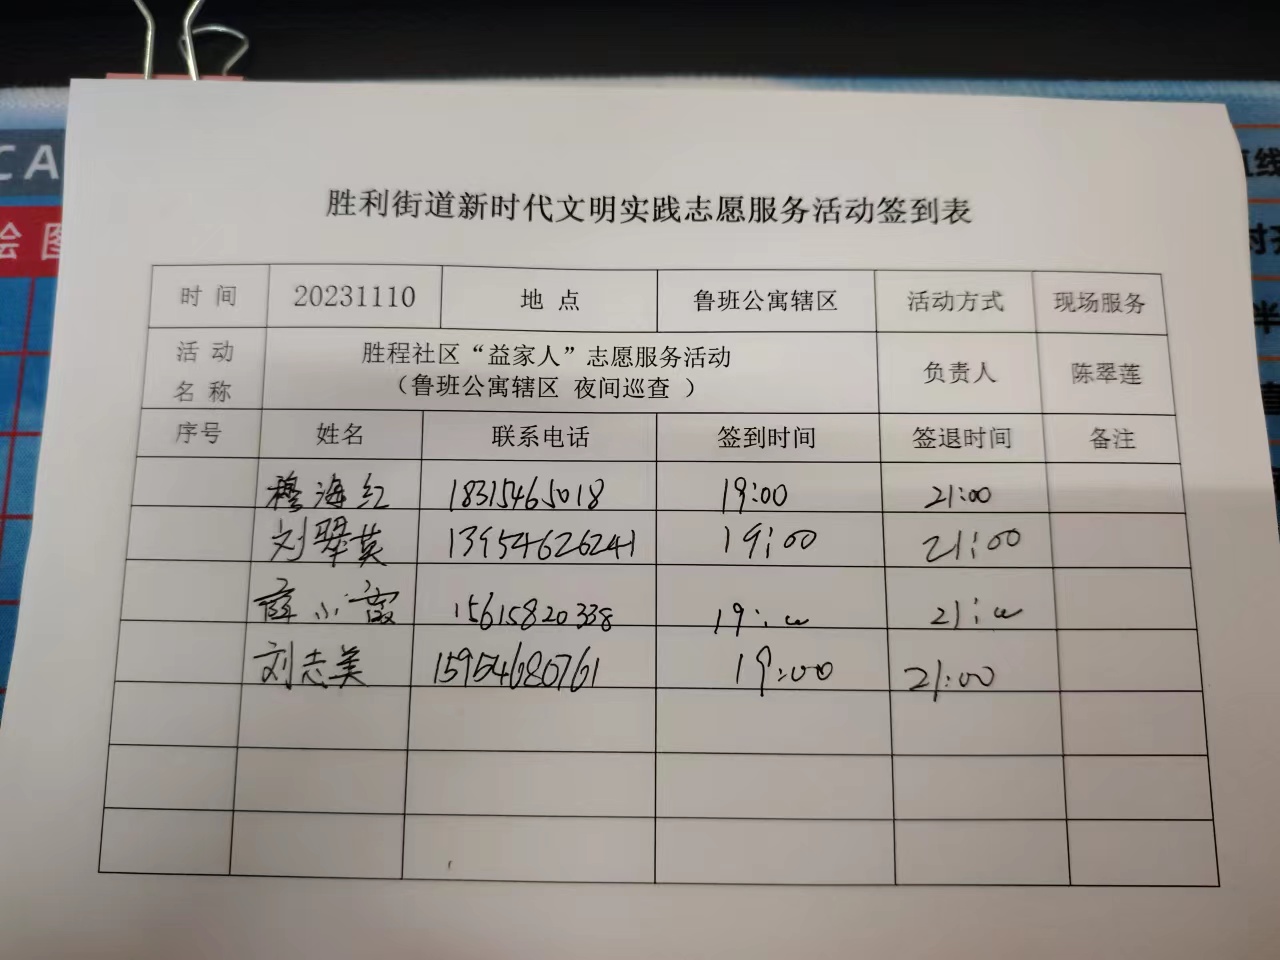 CA
绘图
胜利街道新时代文明实践志愿服务活动签到表
时 间 20231110 地 点 鲁班公寓辖区 活动方式 现场服务
活 动 名 称 胜程社区“益家人”志愿服务活动 负责人 陈翠莲
（鲁班公寓辖区 夜间巡查 ）
序号 姓名 联系电话 签到时间 签退时间 备注
穆海红 18315465018 19:00 21:00
刘翠英 13954626241 19:00 21:00
薛小霞 15615820338 19:00 21:00
刘志美 15954680761 19:00 21:00
直线
对齐
半